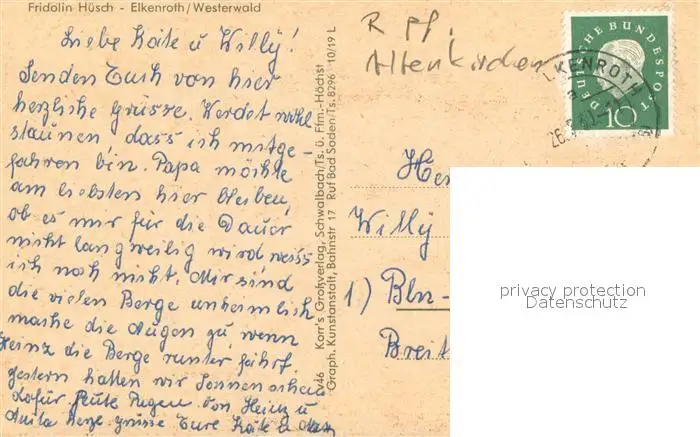 Fridolin Hüsch - Elkenroth/Westerwald
Liebe Käte u Willy!
Senden Euch von hier
herzliche grüsse. Werdet wohl
staunen dass ich mitge-
fahren bin. Papa möchte
am liebsten hier bleiben,
ob es mir für die Dauer
nicht langweilig wird weiss
ich noch nicht. Mir sind
die vielen Berge unheimlich
mache die Augen zu, wenn
Heinz die Berge runter fährt.
gestern hatten wir Sonnenschein
dafür heute Regen. Von Heinz u
Anita herzl. grüsse Eure Käte u
v46 Korr's Großverlag, Schwalbach/Ts. ü. Ffm.-Höchst
Graph. Kunstanstalt, Bahnstr 17 Ruf Bad Soden/Ts. 8296 10/19 L
R pf.
Altenkirchen
DEUTSCHE BUNDESPOST
10
ELKENROTH
Willy
1) Bln-
Breit
privacy protection
Datenschutz